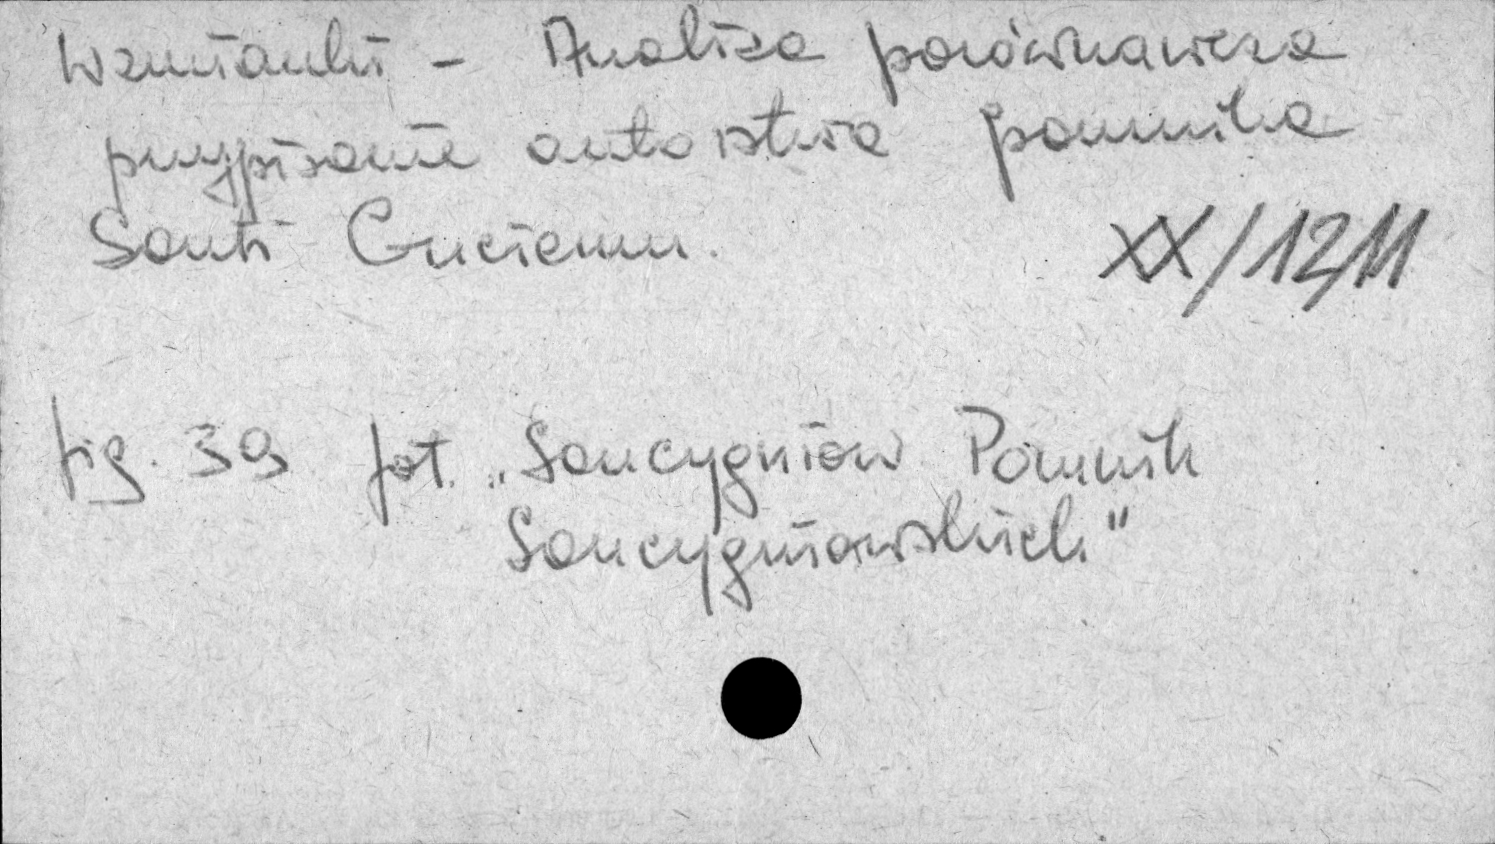 Wzmianki - Analiza porównawcza
przypisanie autorstwa pomnika
Santi Gucciemu.
XX/1211
fig. 39 fot. „Sancygniów Pomnik
Sancygniowskich"